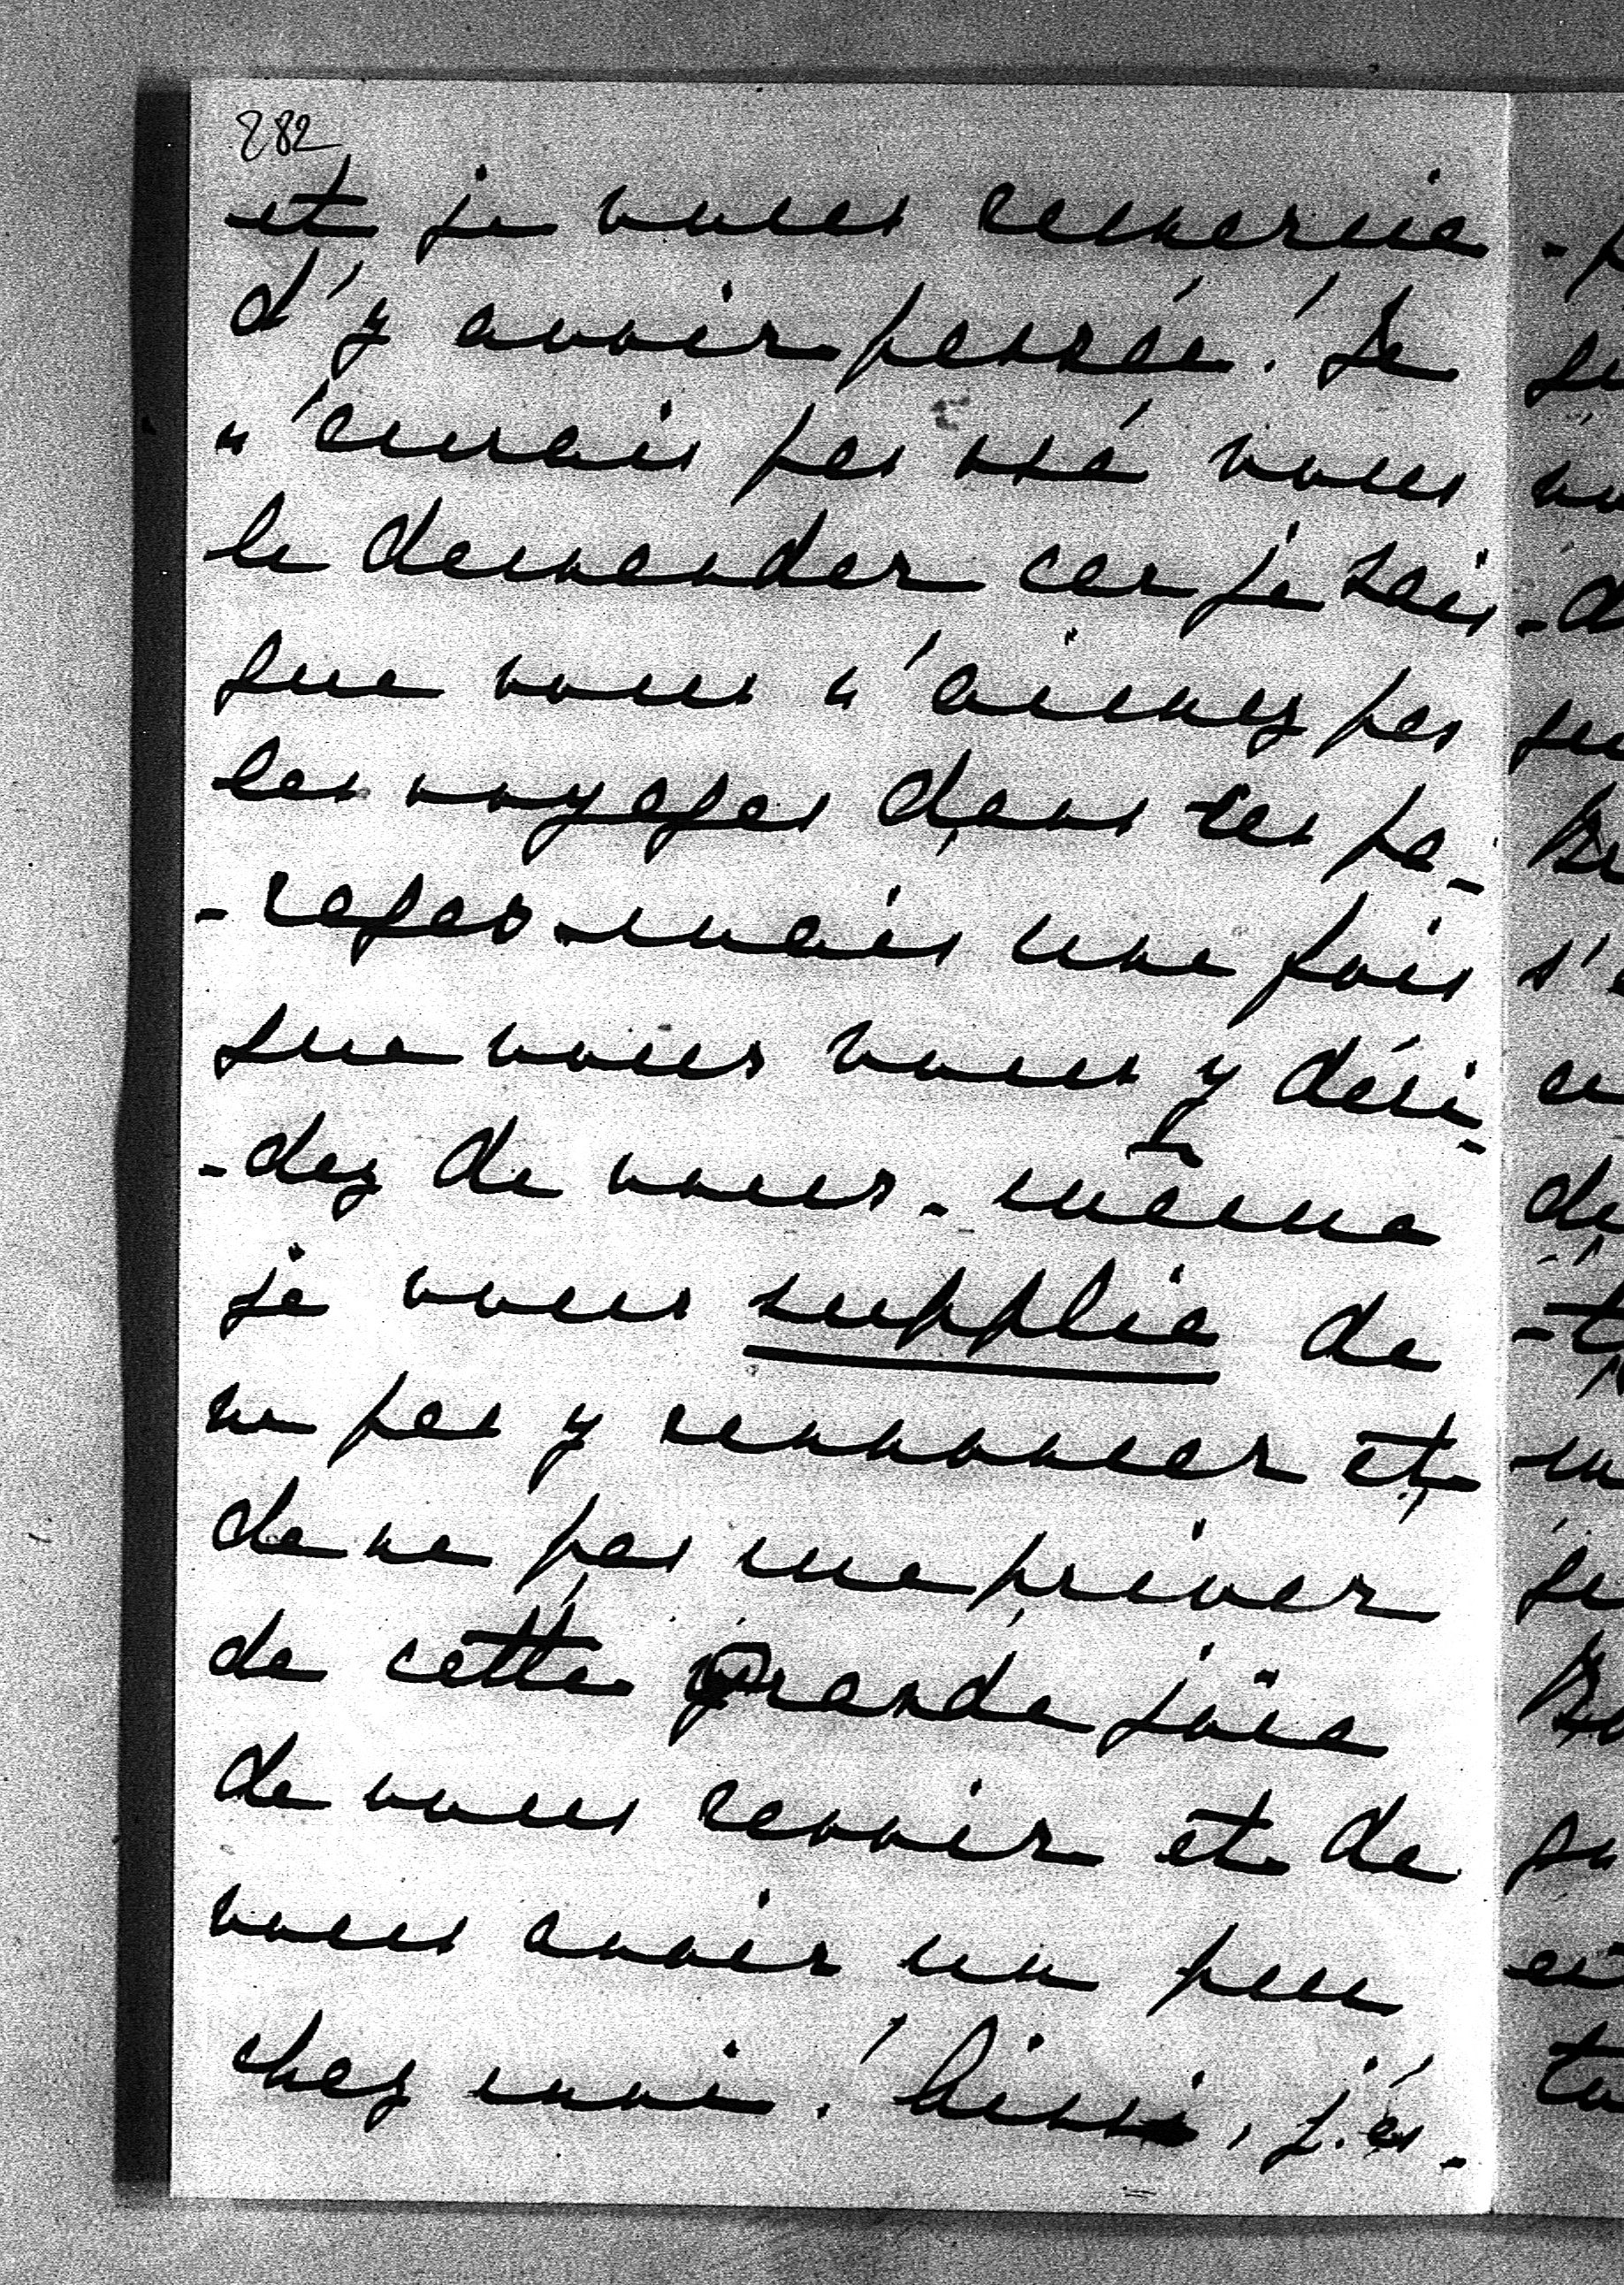 282
et je vous remercie
d'y avoir pensé ! Je
n'aurais pas osé vous
le demander car je sais
que vous n'aimez pas
les voyages dans ces pa-
-rages mais une fois
que vous vous y déci-
-dez de vous-même
je vous supplie de
ne pas y renoncer et
de ne pas me priver
de cette grande joie
de vous revoir et de
vous avoir un peu
chez moi ! Ainsi, j'es-